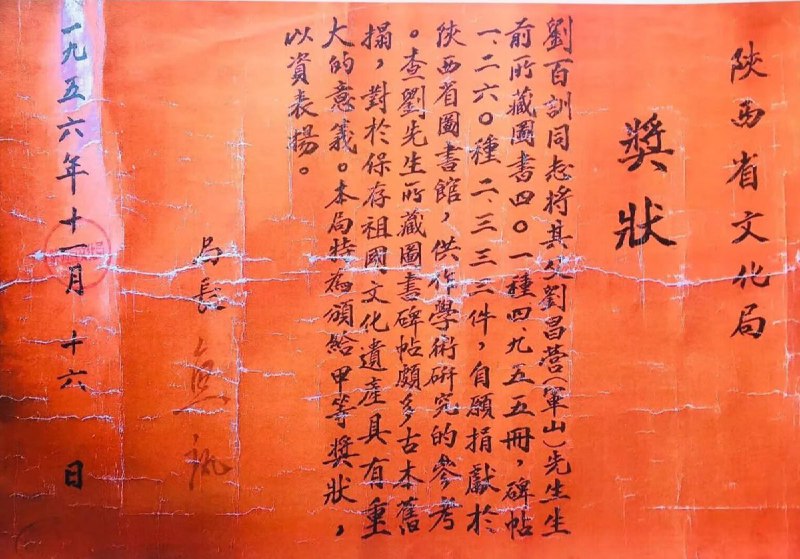 陝西省文化局
獎狀
劉百訓同志將其父劉昌营(軍山)先生生
前所藏圖書四〇一種四、九五五冊，碑帖
一、二六〇種二、三三三件，自願捐獻於
陝西省圖書館，供作學術研究的參考
。查劉先生所藏圖書碑帖頗多古本舊
搨，對於保存祖國文化遺産具有重
大的意義。本局特為頒給甲等獎狀，
以資表揚。
局長
一九五六年十一月十六日